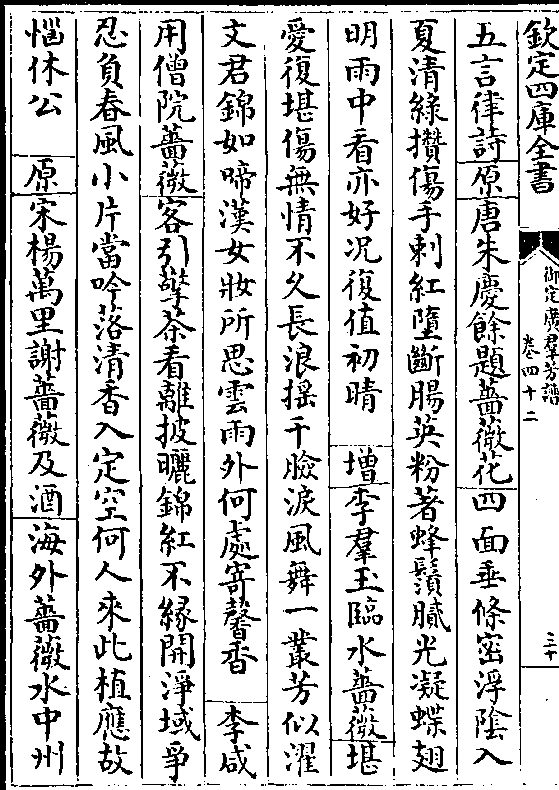 欽定四庫全書
御定廣羣芳譜
卷四十二
三十
五言律詩原唐朱慶餘題薔薇花四面垂條密浮陰入
夏清綠攢傷手刺紅墮斷腸英粉著蜂鬚膩光凝蝶翅
明雨中看亦好況復值初晴 增李羣玉臨水薔薇堪
愛復堪傷無情不久長浪摇千臉淚風舞一叢芳似濯
文君錦如啼漢女妝所思雲雨外何處寄馨香 李咸
用僧院薔薇客引擎茶看離披曬錦紅不緣開淨域爭
忍負春風小片當吟落清香入定空何人來此植應故
惱休公 原宋楊萬里謝薔薇及酒海外薔薇水中州